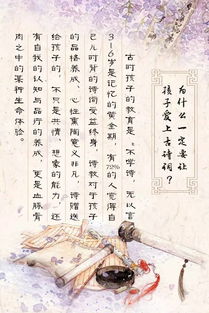 为什么一定要让
孩子爱上古诗词？
古时孩子的教育是“不学诗，无以言
岁是记忆的黄金期，有72%的人觉得自
己儿时背的诗词受益终身，诗教对于孩子
的品格养成、心性熏陶意义非凡，诗赠送
给孩子的，不只是共情、想象的能力，还
有自我的认知与品行的养成，更是血脉骨
肉之中的某种生命体验。